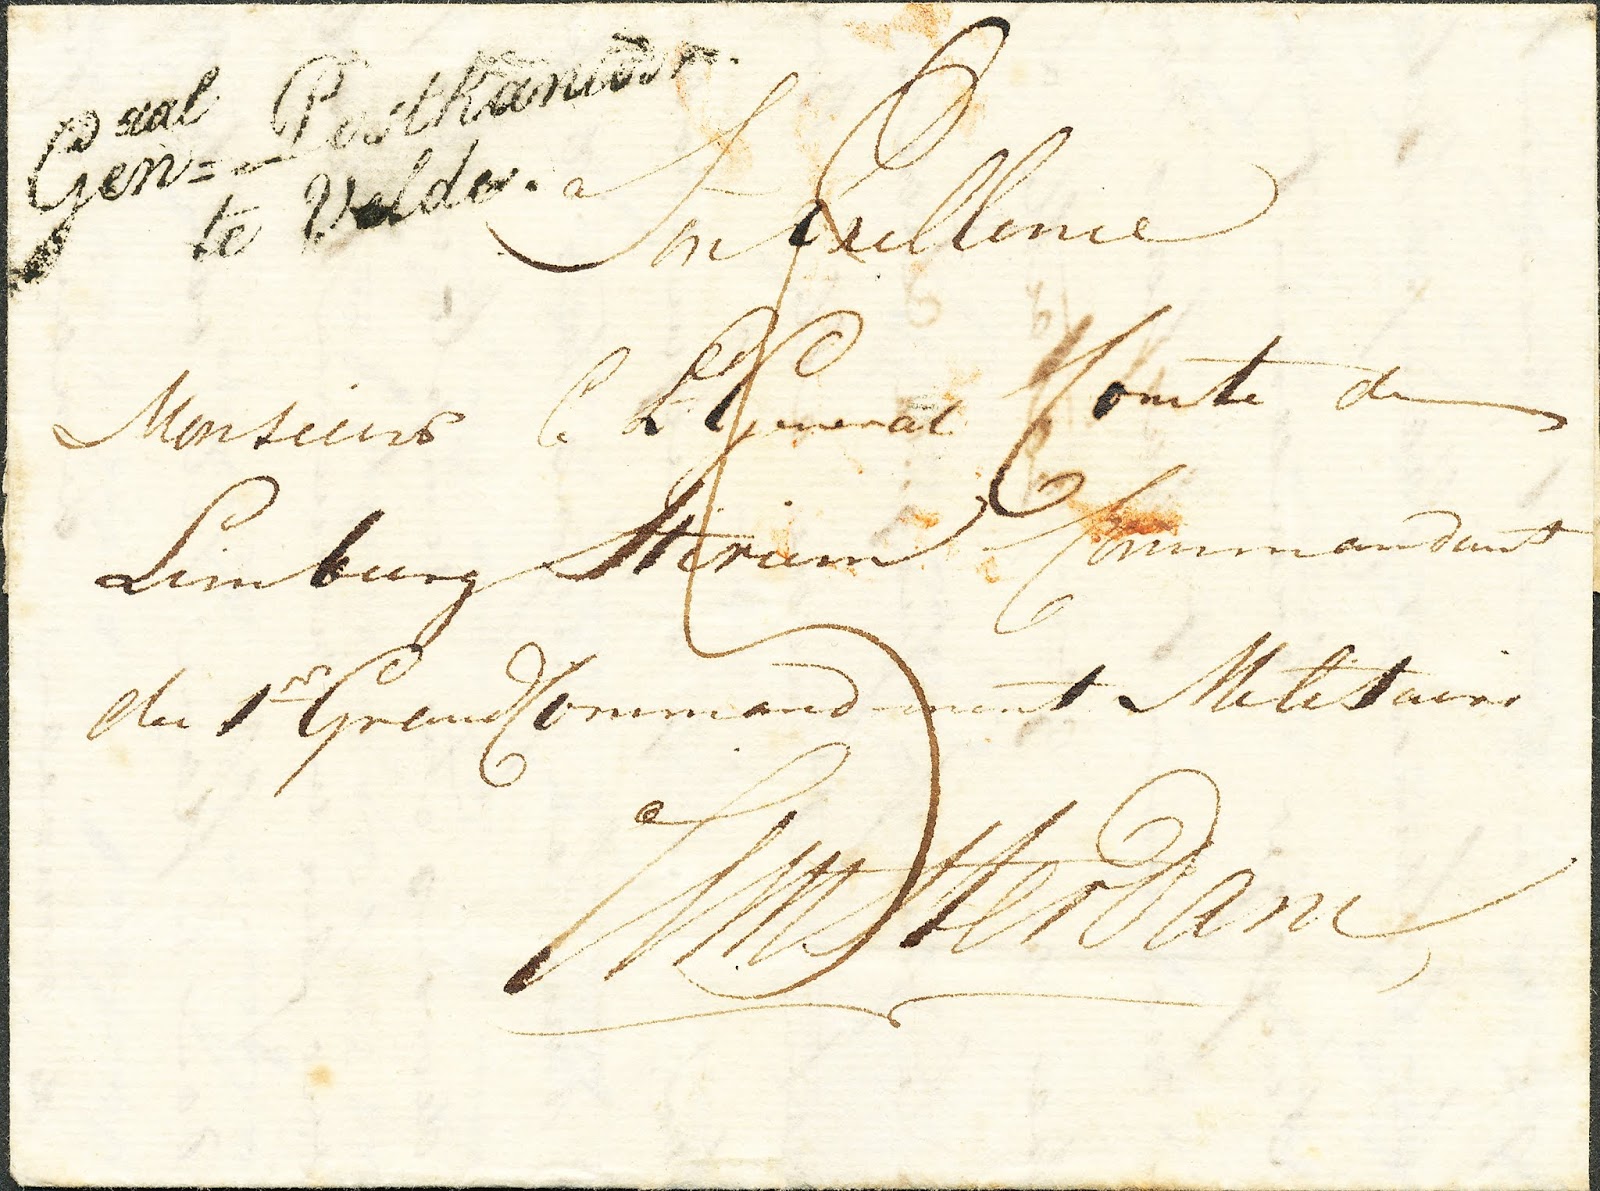 Gen=ral Postkantoor.
te Velde.
a Son Excellence
Monsieur le Lt General Comte de
Limburg Stirum Commandant
du 1er Grand Commandement Militaire
a
Amsterdam